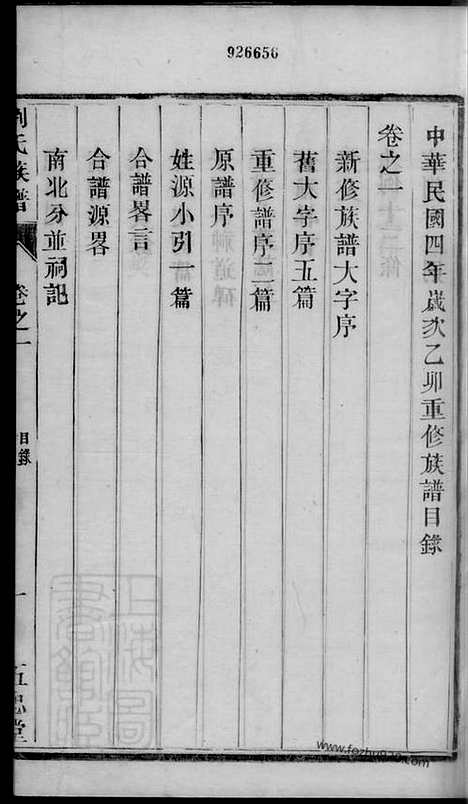 926656
中華民國四年歲次乙卯重修族譜目錄
卷之一
新修族譜大字序
舊大字序五篇
重修譜序二篇
原譜序
姓源小引一篇
合譜畧言
合譜源畧
南北分並祠記
劉氏族譜
卷之一
目錄
一
五忠堂
上海圖書館藏